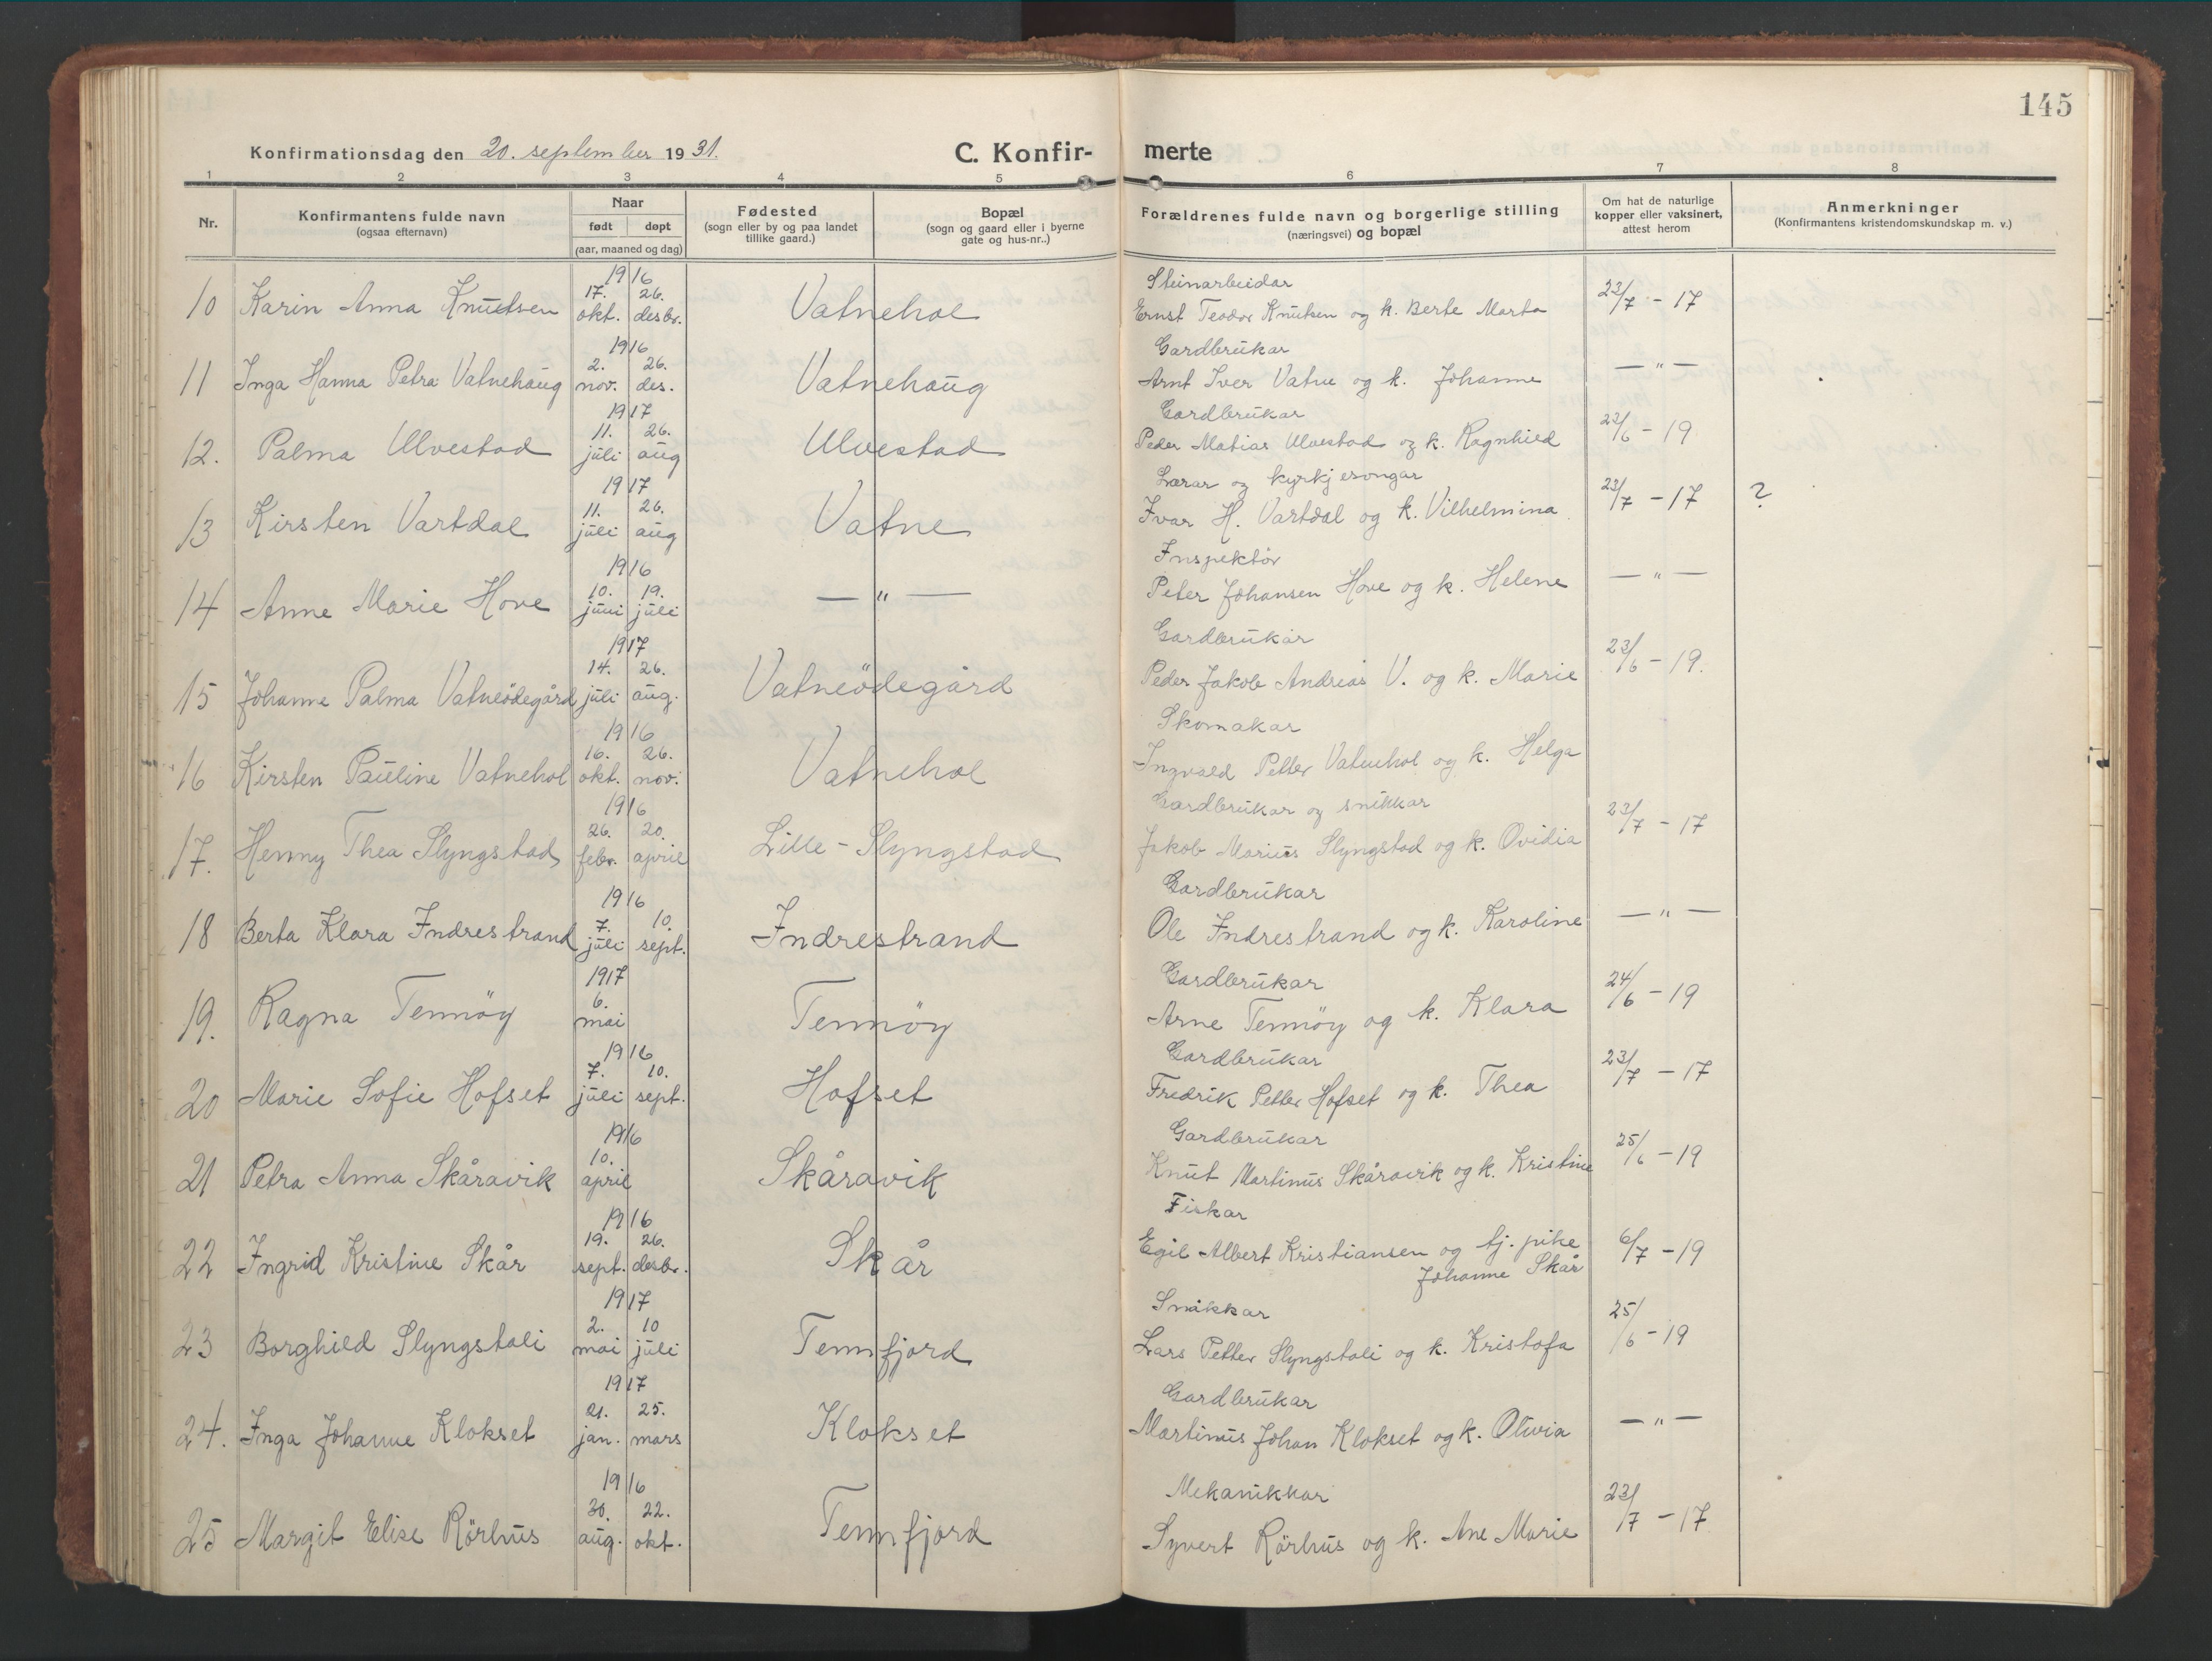 145
Konfirmationsdag den 20. september 1931.
C. Konfir-merte
1 2 3 4 5 6 7 8
Nr.
Konfirmantens fulde navn
(ogsaa efternavn)
Naar
født døpt
(aar, maaned og dag)
Fødested
(sogn eller by og paa landet
tillike gaard.)
Bopæl
(sogn og gaard eller i byerne
gate og hus-nr..)
Forældrenes fulde navn og borgerlige stilling
(næringsvei) og bopæl
Om hat de naturlige
kopper eller vaksinert,
attest herom
Anmerkninger
(Konfirmantens kristendomskundskap m. v.)
1916
17. 26.
10 Karin Anna Knudtsen okt. desbr. Vatnehol
Steinarbeidar
Ernst Teodor Knutsen og k. Berte Marta 23/7 - 17
1916
2. 26.
11 Inga Hanna Petra Vatnehaug nov. des. Vatnehaug
Gardbrukar
Arnt Iver Vatne og k. Johanne — " —
1917
11. 26.
12. Palma Ulvestad juli aug Ulvestad
Gardbrukar
Peder Matias Ulvestad og k. Ragnhild 23/6 - 19
1917
11. 26.
13 Kirsten Vartdal juli aug Vatne
Lærar og kyrkjesongar
Ivar H. Vartdal og k. Vilhelmina 23/7 - 17 ?
1916
10. 19.
14 Anne Marie Hove juni juli — " —
Inspektör
Peter Johansen Hove og k. Helene — " —
1917
14. 26.
15 Johanne Palma Vatneödegård juli aug. Vatneödegård
Gardbrukar
Peder Jakob Andreas V. og k. Marie 23/6 - 19.
1916
16. 26.
16 Kirsten Pauline Vatnehol okt. nov. Vatnehol
Skomakar
Ingvald Petter Vatnehol og k. Helga
1916
26. 20.
17. Henny Thea Slyngstad febr. april Lille-Slyngstad
Gardbrukar og snikkar
Jakob Marius Slyngstad og k. Ovidia 23/7 - 17
1916
7. 10.
18 Berta Klara Indrestrand juli sept. Indrestrand
Gardbrukar
Ole Indrestrand og k. Karoline — " —
1917
6.
19. Ragna Tennöy mai Tennöy
Gardbrukar
Arne Tennöy og k. Klara 24/6 - 19
1916
7. 10.
20 Marie Sofie Hofset juli sept. Hofset
Gardbrukar
Fredrik Petter Hofset og k. Thea 23/7 - 17
1916
10.
21 Petra Anna Skåravik april Skåravik
Gardbrukar
Knut Martinus Skåravik og k. Kristine 25/6 - 19
1916
19. 26.
22 Ingrid Kristine Skår sept. desbr. Skår
Fiskar
Egil Albert Kristiansen og tj. pike
Johanne Skår 6/7 - 19
1917
2. 10
23 Borghild Slyngstali mai juli Tennfjord
Snikkar
Lars Petter Slyngstali og k. Kristofa 25/6 - 19
1917
21. 25.
24. Inga Johanne Klokset jan. mars Klokset
Gardbrukar
Martinus Johan Klokset og k. Olivia — " —
1916
30. 22.
25 Margit Elise Rörhus aug. okt. Tennfjord
Mekanikkar
Syvert Rörhus og k. Ane Marie 23/7 - 17